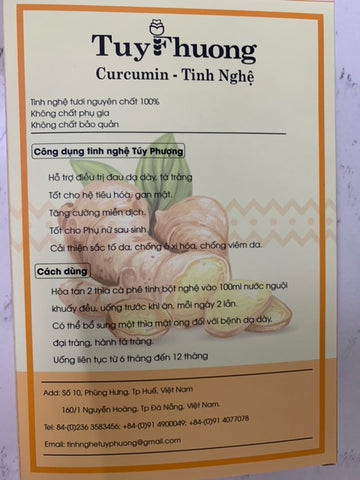 TuyPhuong
Curcumin - Tinh Nghệ
Tinh nghệ tươi nguyên chất 100%
Không chất phụ gia
Không chất bảo quản
Công dụng tinh nghệ Túy Phượng
Hỗ trợ điều trị đau dạ dày, tá tràng
Tốt cho hệ tiêu hóa, gan mật.
Tăng cường miễn dịch.
Tốt cho Phụ nữ sau sinh.
Cải thiện sắc tố da, chống ô xi hóa, chống viêm da.
Cách dùng
Hòa tan 2 thìa cà phê tinh bột nghệ vào 100ml nước nguội
khuấy đều, uống trước khi ăn, mỗi ngày 2 lần.
Có thể bổ sung một thìa mật ong đối với bệnh dạ dày,
đại tràng, hành tá tràng.
Uống liên tục từ 6 tháng đến 12 tháng
Add: Số 10, Phùng Hưng, Tp Huế, Việt Nam
160/1 Nguyễn Hoàng, Tp Đà Nẵng, Việt Nam.
Tel: 84-(0)236 3583456; +84-(0)91 4900049; +84-(0)91 4077078
Email: tinhnghetuyphuong@gmail.com